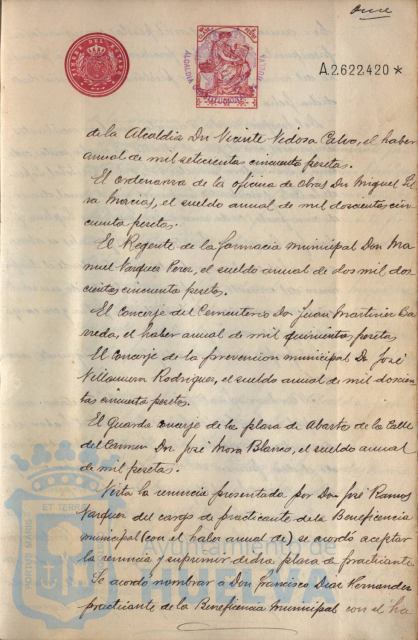 Once
A.2.622.420*
de la Alcaldia Dn Vicente Vidosa Calvo, el haber
anual de mil setecientas cincuenta pesetas.
El Ordenanza de la oficina de Obras Dn Miguel
Macias, el sueldo anual de mil doscientas cin
cuenta pesetas.
El Regente de la farmacia municipal Don Ma
nuel Vazquez Perez, el sueldo anual de dos mil dos
cientas cincuenta pesetas.
El Conserje del Cementerio Dn Juan Martinez Ba
rreda, el haber anual de mil quinientas pesetas
El Conserje de la prevencion municipal Dn José
Villanueva Rodriguez, el sueldo anual de mil doscien
tas cincuenta pesetas.
El Guarda conserje de la plaza de Abastos de la Calle
del Carmen Dn José Mora Blanco, el sueldo anual
de mil pesetas.
Vista la renuncia presentada por Don José Ramos
Vazquez del cargo de practicante de la Beneficencia
municipal (con el haber anual de) se acordó aceptar
la renuncia y suprimir dicha plaza de practicante.
Se acordó nombrar á Don Francisco Diaz Hernandez
practicante de la Beneficencia Municipal con el ha
Ayuntamiento de
HUELVA
PORTUS MARIS ET TERRAE